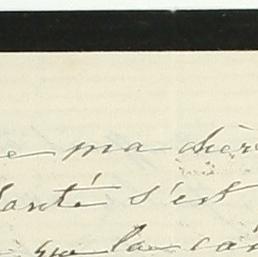 e ma chèr
santé s'est
que la ca